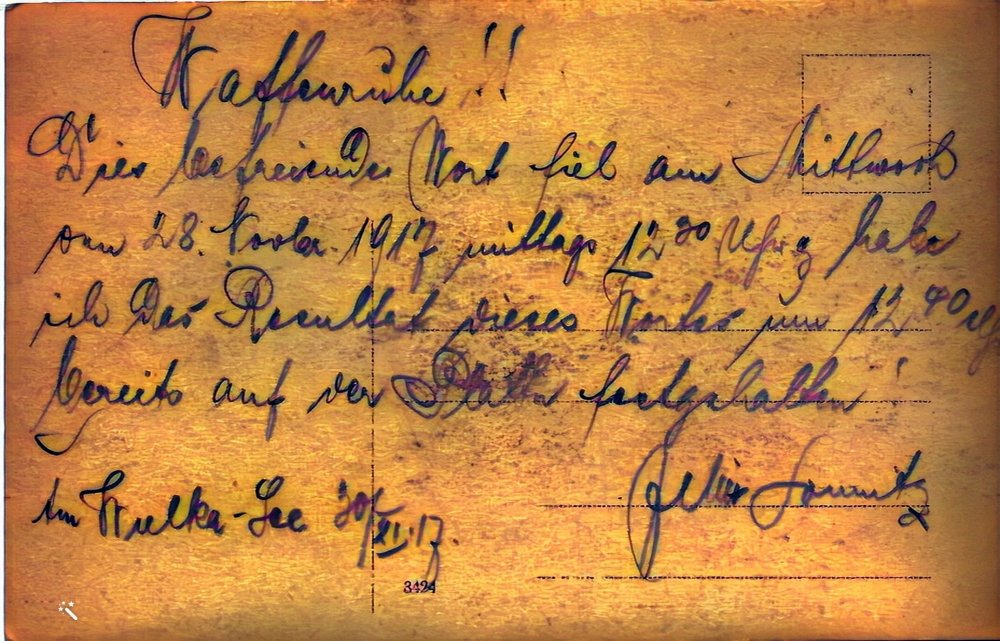 Waffenruhe!!
Dies befreiende Wort fiel am Mittwoch
vom 28. Novbr. 1917 mittags 12³⁰ Uhr, habe
ich das Resultat dieses Wortes um 12,⁴⁰
bereits auf der Platte festgehalten!
Felix
Am Wielka-See 30/XI.17.
3424